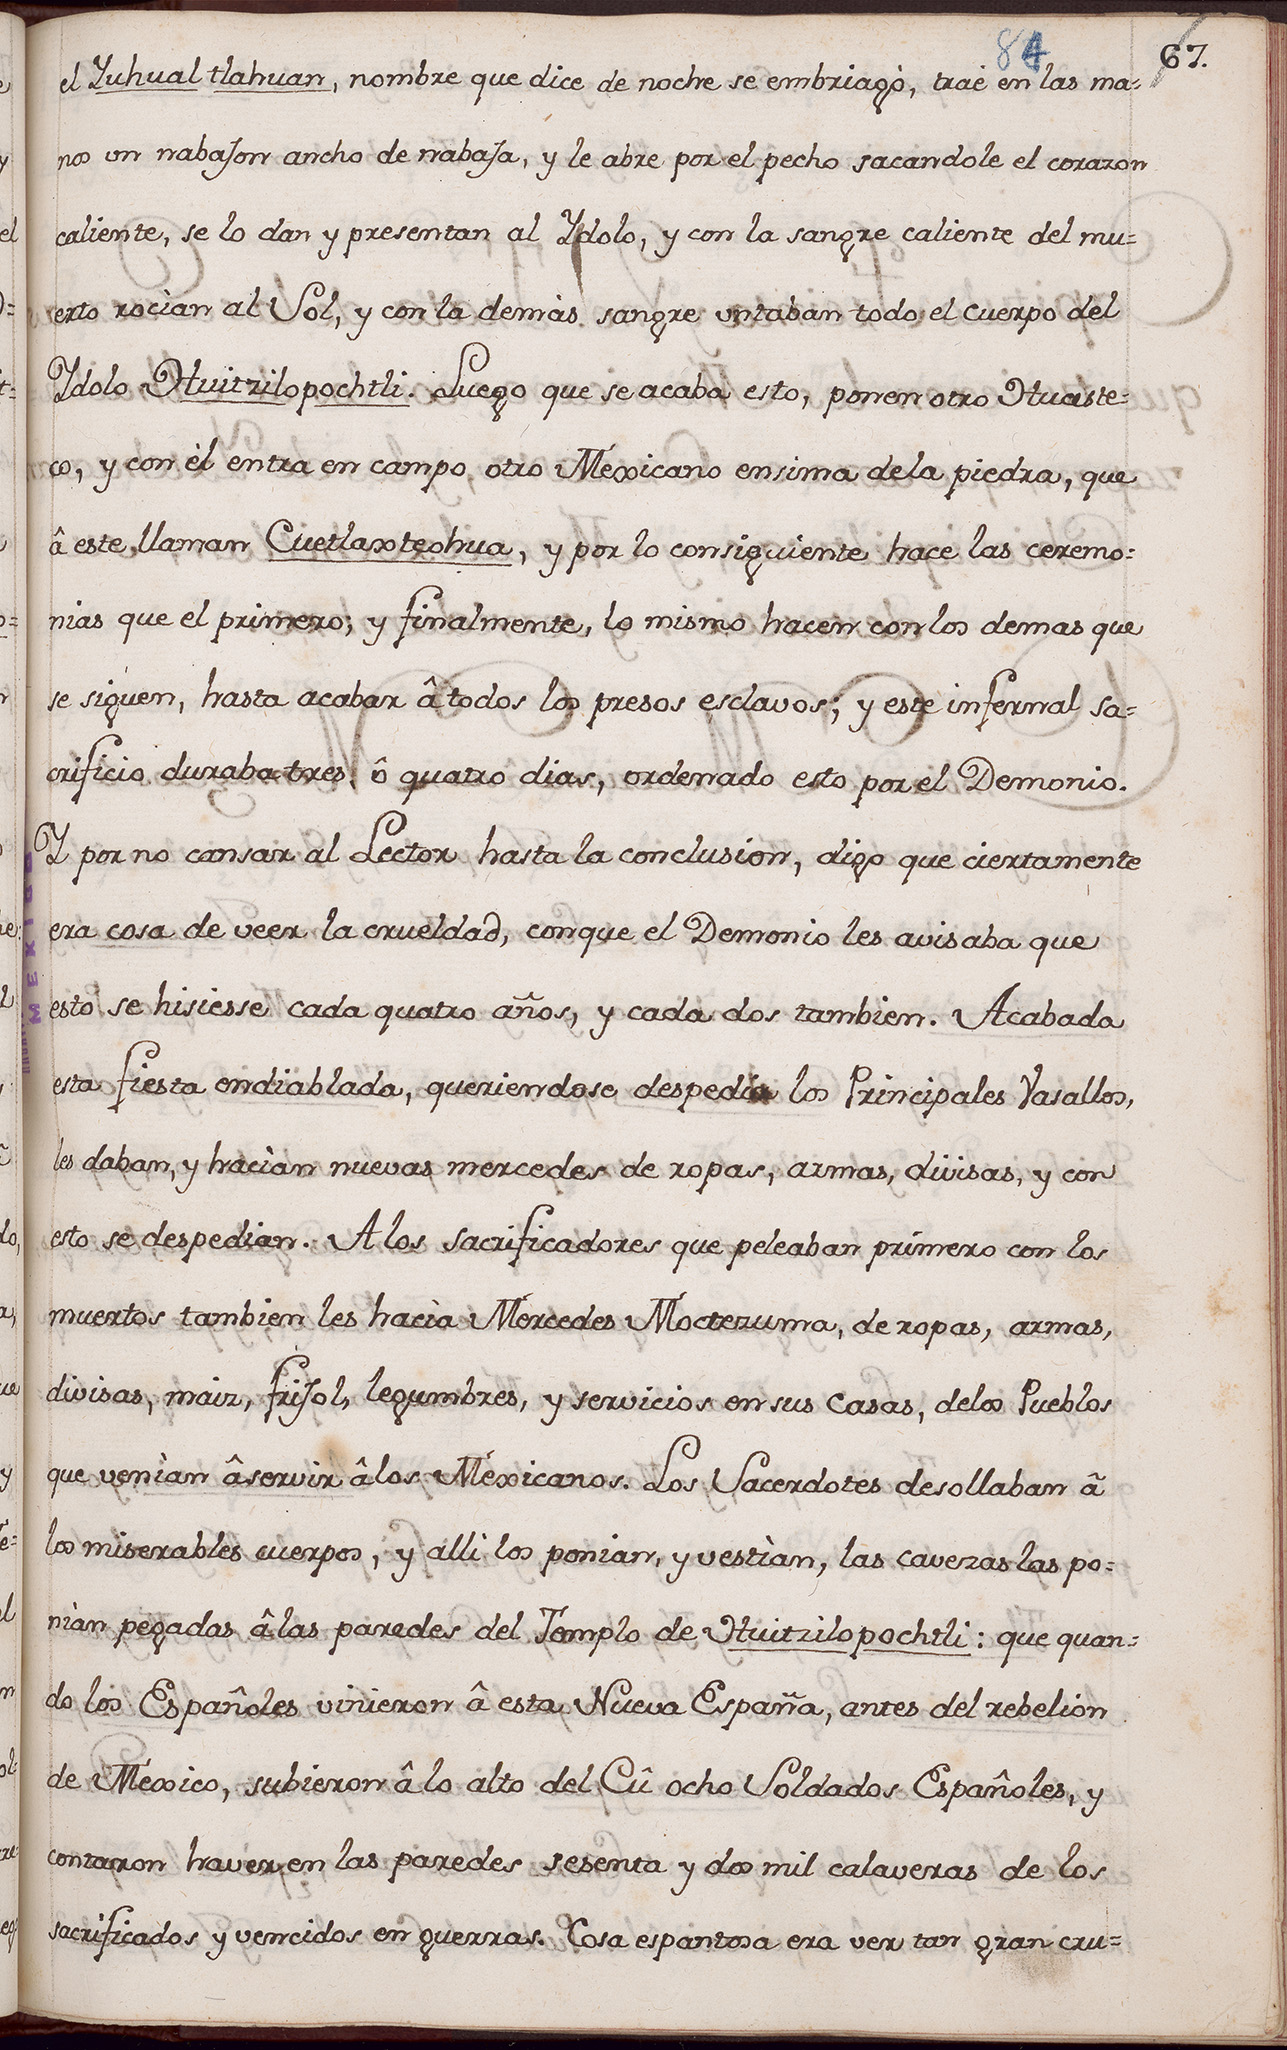 84 67.
el Yuhual tlahuan, nombre que dice de noche se embriagò, traé en las ma=
nos un nabajon ancho de nabaja, y le abre por el pecho sacandole el corazon
caliente, se lo dan y presentan al Ydolo, y con la sangre caliente del mu=
erto rocìan al Sol, y con la demàs sangre untaban todo el cuerpo del
Ydolo Huitzilopochtli. Luego que se acaba esto, ponen otro Huaste=
co, y con èl entra en campo otro Mexicano ensima dela piedra, que
â este llaman Cuetlaxteohua, y por lo consiguiente hace las ceremo=
nias que el primero; y finalmente, lo mismo hacen con los demas que
se siguen, hasta acabar â todos los presos esclavos; y este infernal sa=
crificio duraba tres, ô quatro dias, ordenado esto por el Demonio.
Y por no cansar al Lector hasta la conclusion, digo que ciertamente
era cosa de veer la crueldad, conque el Demonio les avisaba que
esto se hisiesse cada quatro años, y cada dos tambien. Acabada
esta fiesta endiablada, queriendose despedir los Principales Vasallos,
les daban, y hacìan nuevas mercedes de ropas, armas, divisas, y con
esto se despedian. A los sacrificadores que peleaban primero con los
muertos tambien les hacìa Mercedes Moctezuma, de ropas, armas,
divisas, maiz, frijol, legumbres, y servicios en sus Casas, delos Pueblos
que venìan âservir âlos Mexicanos. Los Sacerdotes desollaban â
los miserables cuerpos, y alli los ponian, y vestìan, las cavezas las po=
nìan pegadas âlas paredes del Templo de Huitzilopochtli: que quan=
do los Españoles vinieron â esta Nueva España, antes del rebelion
de Mexico, subieron â lo alto del Cû ocho Soldados Españoles, y
contaron haver en las paredes sesenta y dos mil calaveras de los
sacrificados y vencidos en guerras. Cosa espantosa era ver tan gran cru=